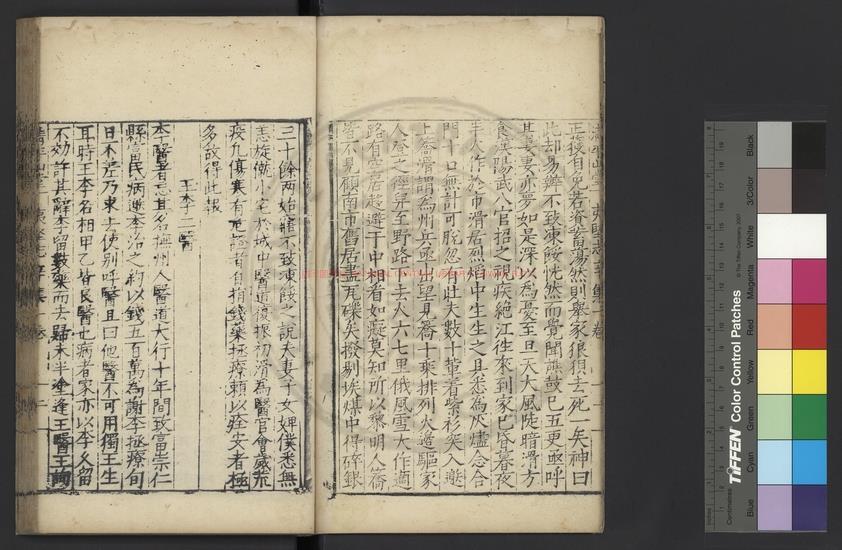 正複自免若資蓄蕩然則舉家狼狽去死一矣神曰
此却易辦不致凍餒恍然而覺聞鼓已五更亟呼
其妻妻亦夢如是深以為憂至旦天大風陡暗滑方
食漢陽武八官招之視疾絶江往來到家已昏暮夜
半火作於市滑居烈焰中生生之具悉為灰燼念合
門十口無計可脫忽有壯夫數十輩著紫衫突入邀
上轎滑謂為州兵亟出望見轎十乘排列火邊驅家
人登之徑舁至野路去人六七里俄風雪大作適
路有空屋趨避于中相看如癡莫知所以黎明人轎
皆不見顧南市舊居盡瓦礫矣撥剔埃煤中得碎銀
三十餘兩始寤不致凍餒之說夫妻子女婢僕悉無
恙旋僦小宅於城中醫道復振初滑為醫官會歲荒
疫凡傷寒有危證者自捐錢藥拯療賴以痊安者極
多故得此報
王李二醫
李醫者忘其名撫州人醫道大行十年間致富崇仁
縣富民病邀李治之約以錢五百萬為謝李拯療旬
日不差乃求去使別呼醫且曰他醫不可用獨王生
耳時王李名相甲乙皆良醫也病者家亦以李久留
不効許其辭李留數藥而去歸未半塗逢王醫王詢
TIFFEN Color Control Patches
© The Tiffen Company, 2007
Inches
Centimetres
Blue
Cyan
Green
Yellow
Red
Magenta
White
3/Color
Black